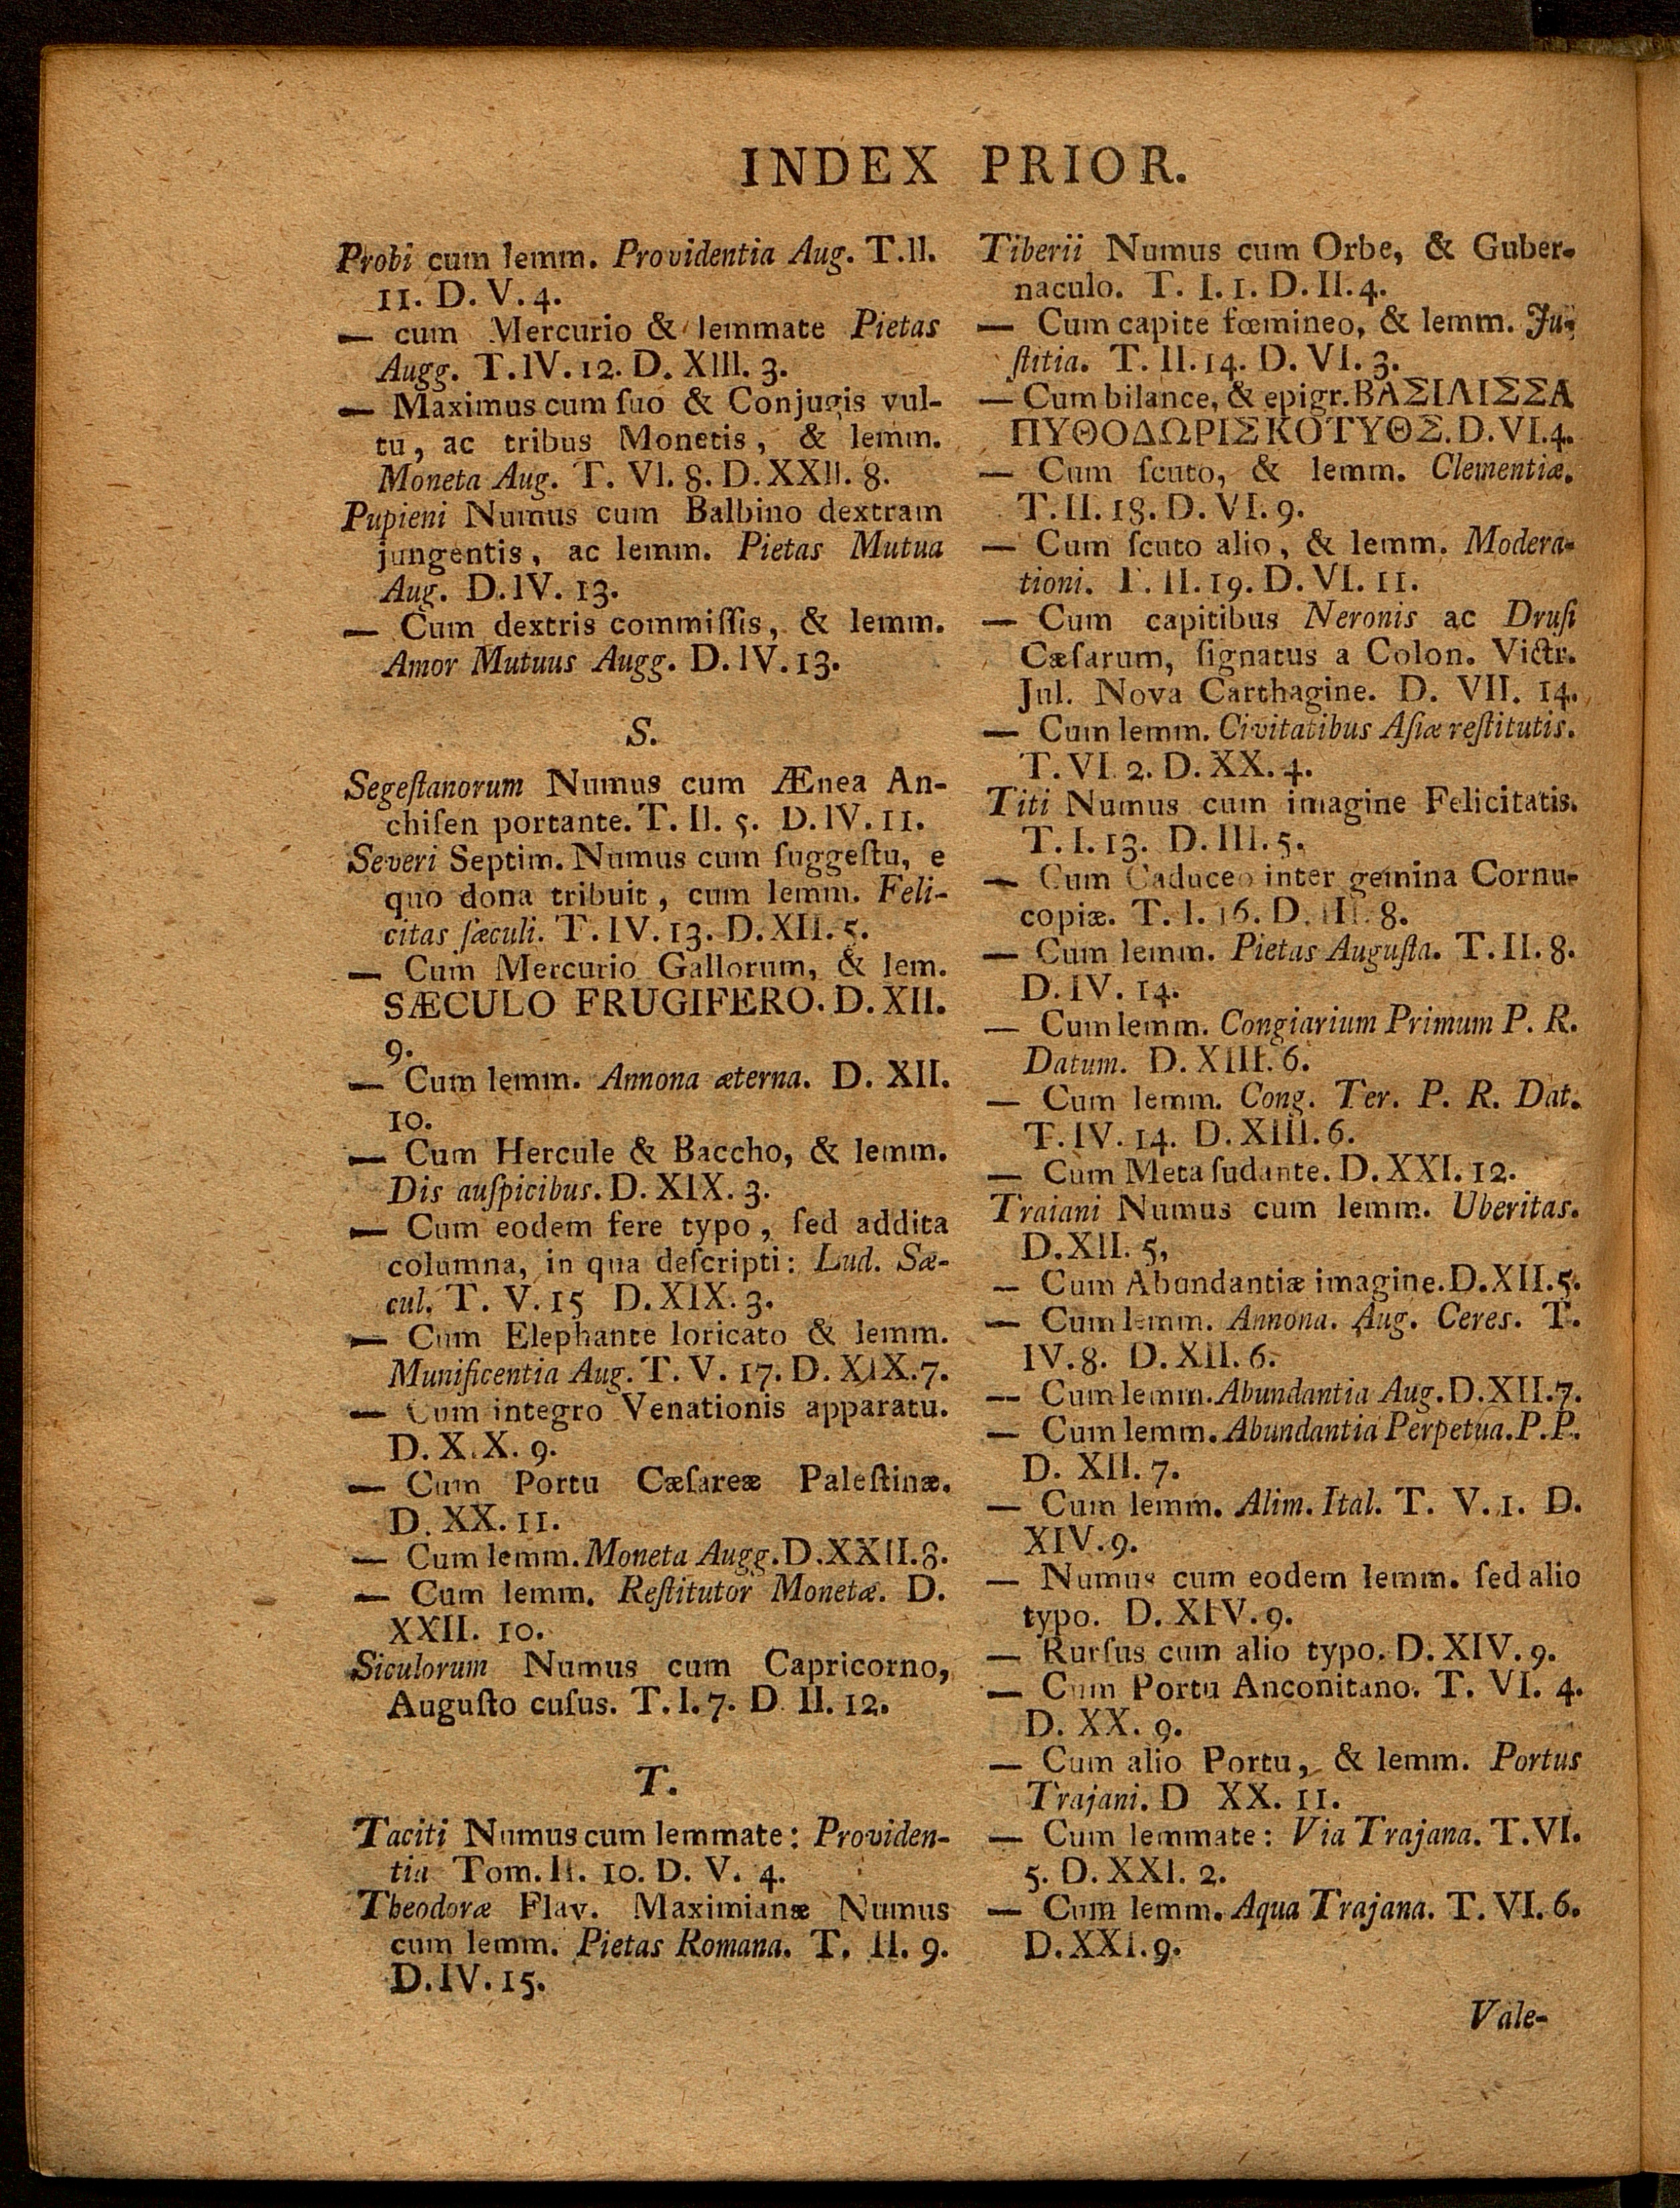 INDEX PRIOR.
Probi cum lemm. Providentia Aug. T.II.
11. D. V. 4.
— cum Mercurio & lemmate Pietas
Augg. T. IV. 12. D. XIII. 3.
— Maximus cum ſuo & Conjugis vul-
tu, ac tribus Monetis, & lemm.
Moneta Aug. T. VI. 8. D. XXII. 8.
Pupieni Numus cum Balbino dextram
jungentis, ac lemm. Pietas Mutua
Aug. D. IV. 13.
— Cum dextris commiſſis, & lemm.
Amor Mutuus Augg. D. IV. 13.
S.
Segeſtanorum Numus cum Ænea An-
chiſen portante. T. II. 5. D. IV. 11.
Severi Septim. Numus cum ſuggeſtu, e
quo dona tribuit, cum lemm. Feli-
citas ſæculi. T. IV. 13. D. XII. 5.
— Cum Mercurio Gallorum, & lem.
SÆCULO FRUGIFERO. D. XII.
9.
— Cum lemm. Annona æterna. D. XII.
10.
— Cum Hercule & Baccho, & lemm.
Dis auſpicibus. D. XIX. 3.
— Cum eodem fere typo, ſed addita
columna, in qua deſcripti: Lud. Sæ-
cul. T. V. 15 D. XIX. 3.
— Cum Elephante loricato & lemm.
Munificentia Aug. T. V. 17. D. XIX. 7.
— Cum integro Venationis apparatu.
D. X.X. 9.
— Cum Portu Cæſareæ Paleſtinæ.
D. XX. 11.
— Cum lemm. Moneta Augg. D. XXII. 8.
— Cum lemm. Reſtitutor Monetæ. D.
XXII. 10.
Siculorum Numus cum Capricorno,
Auguſto cuſus. T. I. 7. D. II. 12.
T.
Taciti Numus cum lemmate: Providen-
tia Tom. II. 10. D. V. 4.
Theodoræ Flav. Maximianæ Numus
cum lemm. Pietas Romana. T. II. 9.
D. IV. 15.
Tiberii Numus cum Orbe, & Guber-
naculo. T. I. 1. D. II. 4.
— Cum capite fœmineo, & lemm. Ju-
ſtitia. T. II. 14. D. VI. 3.
— Cum bilance, & epigr. ΒΑΣΙΛΙΣΣΑ
ΠΥΘΟΔΩΡΙΣ ΚΟΤΥΘΣ. D. VI. 4.
— Cum ſcuto, & lemm. Clementiæ.
T. II. 18. D. VI. 9.
— Cum ſcuto alio, & lemm. Modera-
tioni. T. II. 19. D. VI. 11.
— Cum capitibus Neronis ac Druſi
Cæſarum, ſignatus a Colon. Victr.
Jul. Nova Carthagine. D. VII. 14.
— Cum lemm. Civitatibus Aſiæ reſtitutis.
T. VI. 2. D. XX. 4.
Titi Numus cum imagine Felicitatis.
T. I. 13. D. III. 5.
— Cum Caduceo inter gemina Cornu-
copiæ. T. I. 16. D. III. 8.
— Cum lemm. Pietas Auguſta. T. II. 8.
D. IV. 14.
— Cum lemm. Congiarium Primum P. R.
Datum. D. XIII. 6.
— Cum lemm. Cong. Ter. P. R. Dat.
T. IV. 14. D. XIII. 6.
— Cum Meta ſudante. D. XXI. 12.
Traiani Numus cum lemm. Uberitas.
D. XII. 5,
— Cum Abundantiæ imagine. D. XII. 5.
— Cum lemm. Annona. Aug. Ceres. T.
IV. 8. D. XII. 6.
— Cum lemm. Abundantia Aug. D. XII. 7.
— Cum lemm. Abundantia Perpetua. P. P.
D. XII. 7.
— Cum lemm. Alim. Ital. T. V. 1. D.
XIV. 9.
— Numus cum eodem lemm. ſed alio
typo. D. XIV. 9.
— Rurſus cum alio typo. D. XIV. 9.
— Cum Portu Anconitano. T. VI. 4.
D. XX. 9.
— Cum alio Portu, & lemm. Portus
Trajani. D XX. 11.
— Cum lemmate: Via Trajana. T. VI.
5. D. XXI. 2.
— Cum lemm. Aqua Trajana. T. VI. 6.
D. XXI. 9.
Vale-